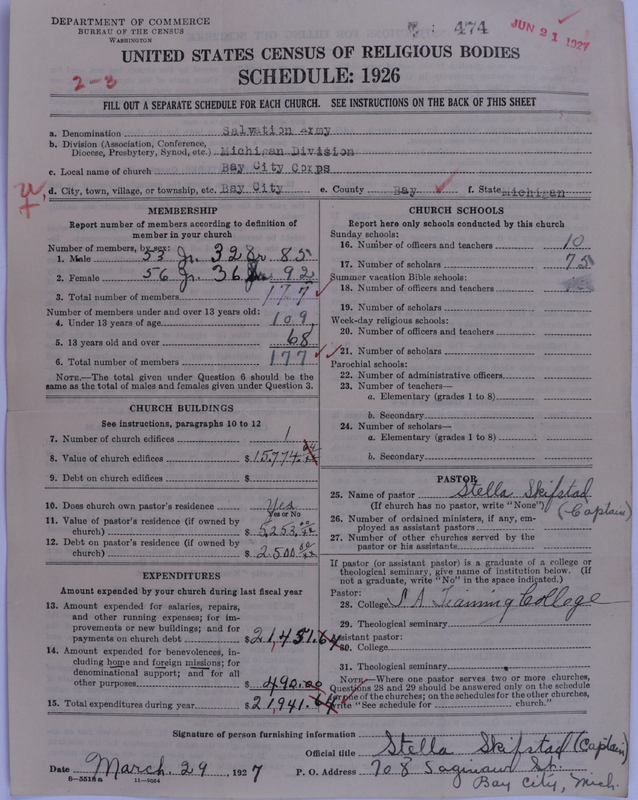 DEPARTMENT OF COMMERCE
BUREAU OF THE CENSUS
WASHINGTON
474
JUN 21 1927
UNITED STATES CENSUS OF RELIGIOUS BODIES
SCHEDULE: 1926
2-3
FILL OUT A SEPARATE SCHEDULE FOR EACH CHURCH. SEE INSTRUCTIONS ON THE BACK OF THIS SHEET
a. Denomination Salvation Army
b. Division (Association, Conference,
Diocese, Presbytery, Synod, etc.) Michigan Division
c. Local name of church Bay City Corps
d. City, town, village, or township, etc. Bay City e. County Bay f. State Michigan
MEMBERSHIP
Report number of members according to definition of
member in your church
Number of members, by sex:
1. Male 53 Jr. 32 Sr 85
2. Female 56 Jr. 36 92
3. Total number of members 177
Number of members under and over 13 years old:
4. Under 13 years of age 109
5. 13 years old and over 68
6. Total number of members 177
NOTE.—The total given under Question 6 should be the
same as the total of males and females given under Question 3.
CHURCH BUILDINGS
See instructions, paragraphs 10 to 12
7. Number of church edifices 1
8. Value of church edifices $15,774.
9. Debt on church edifices $
10. Does church own pastor's residence Yes
Yes or No
11. Value of pastor's residence (if owned by
church) $5,253.
12. Debt on pastor's residence (if owned by
church) $2,500.
EXPENDITURES
Amount expended by your church during last fiscal year
13. Amount expended for salaries, repairs,
and other running expenses; for im-
provements or new buildings; and for
payments on church debt $21,451.64
14. Amount expended for benevolences, in-
cluding home and foreign missions; for
denominational support; and for all
other purposes $490.00
15. Total expenditures during year $21,941.64
CHURCH SCHOOLS
Report here only schools conducted by this church
Sunday schools:
16. Number of officers and teachers 10
17. Number of scholars 75
Summer vacation Bible schools:
18. Number of officers and teachers
19. Number of scholars
Week-day religious schools:
20. Number of officers and teachers
21. Number of scholars
Parochial schools:
22. Number of administrative officers
23. Number of teachers—
a. Elementary (grades 1 to 8)
b. Secondary
24. Number of scholars—
a. Elementary (grades 1 to 8)
b. Secondary
PASTOR
25. Name of pastor Stella Skifstad
(If church has no pastor, write "None") (Captain)
26. Number of ordained ministers, if any, em-
ployed as assistant pastors
27. Number of other churches served by the
pastor or his assistants
If pastor (or assistant pastor) is a graduate of a college or
theological seminary, give name of institution below. (If
not a graduate, write "No" in the space indicated.)
Pastor:
28. College S. A. Training College
29. Theological seminary
Assistant pastor:
30. College
31. Theological seminary
NOTE.—Where one pastor serves two or more churches,
Questions 28 and 29 should be answered only on the schedule
for one of the churches; on the schedules for the other churches,
write "See schedule for church."
Signature of person furnishing information
Official title Stella Skifstad (Captain)
Date March 29 1927 P. O. Address 708 Saginaw St.
Bay City, Mich.
8-5518a 11-9084